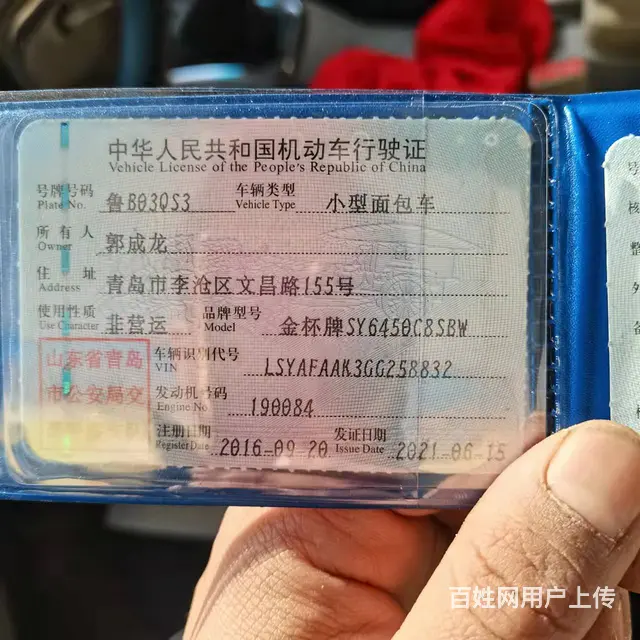 中华人民共和国机动车行驶证
Vehicle License of the People's Republic of China
号牌号码 鲁B03QS3 车辆类型 小型面包车
Plate No. Vehicle Type
所有人 郭成龙
Owner
住址 青岛市李沧区文昌路155号
Address
使用性质 非营运 品牌型号 金杯牌SY6450C8SBW
Use Character Model
山东省青岛
市公安局交
车辆识别代号 LSYAFAAK3GG258832
VIN
发动机号码 190084
Engine No.
注册日期 2016-09-20 发证日期 2021-06-15
Register Date Issue Date
号
核
整
外
百姓网用户上传